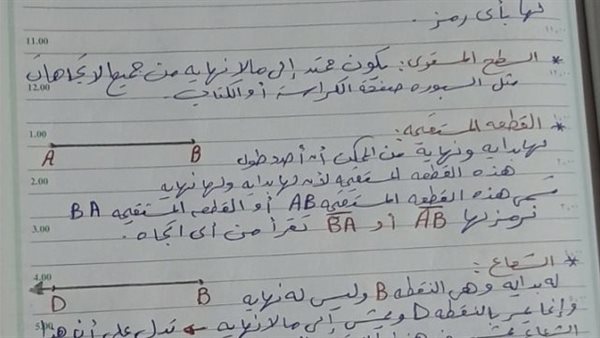 لها بأى رمز.
11.00
* السطح المستوى: يكون ممتد إلى مالانهايه من جميع الاتجاهات
12.00
مثل السبوره صفحة الكراسة أو الكتاب.
* القطعه المستقيمه:
1.00
A B
لها بدايه ونهاية من الممكن أن أحدد طول
هذه القطعه المستقيمه لأن لها بدايه ولها نهايه
2.00
تسمى هذه القطعه المستقيمه AB أو القطعه المستقيمه BA
نرمز لها AB أو BA تقرأ من أى اتجاه.
3.00
* الشعاع:
4.00
D B
له بدايه وهى النقطه B وليس له نهايه
وإنما يمر بالنقطه D ويمشى إلى مالانهايه ← تدل على أن هذا
5.00
الشعاع